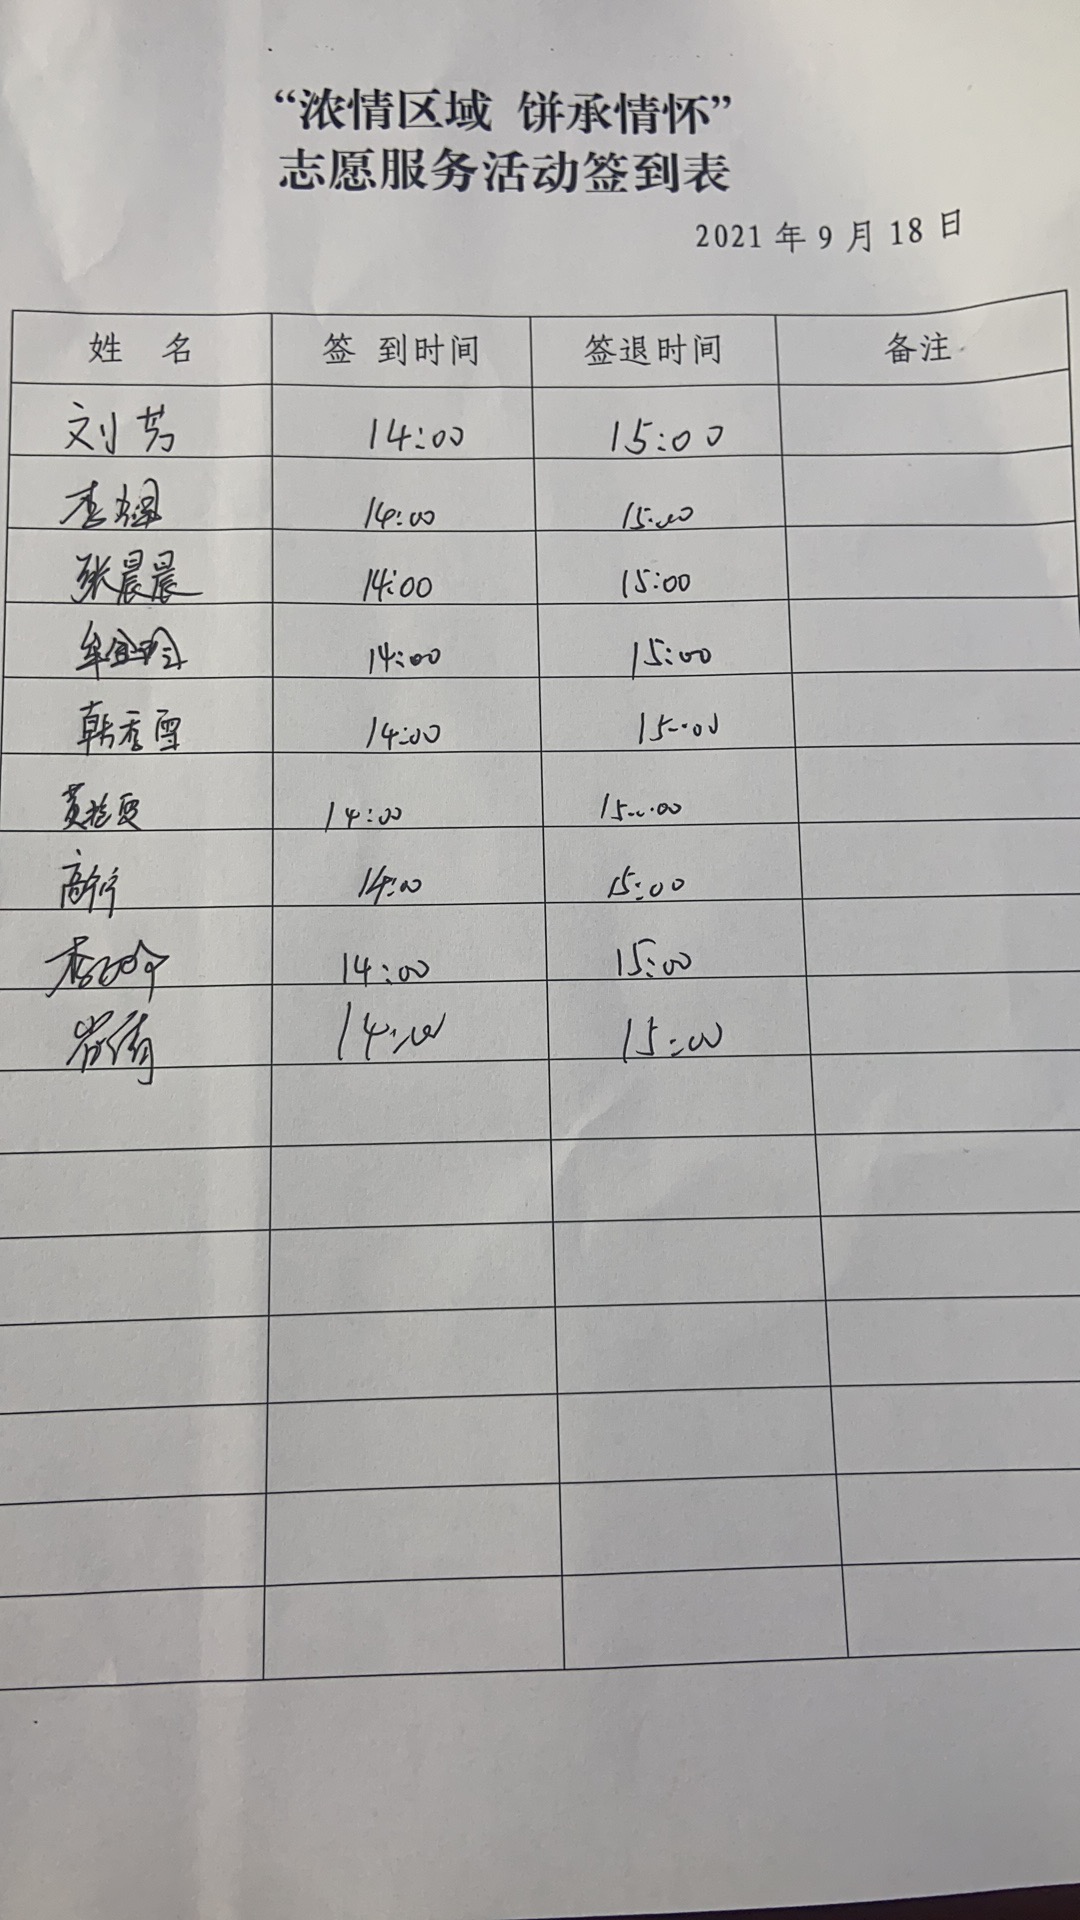 “浓情区域 饼承情怀”
志愿服务活动签到表
2021年9月18日
姓 名 签 到时间 签退时间 备注
刘芳 14:00 15:00
李 14:00 15:00
张晨晨 14:00 15:00
牟 14:00 15:00
韩秀雪 14:00 15:00
黄 14:00 15:00
高 14:00 15:00
李 14:00 15:00
14:00 15:00